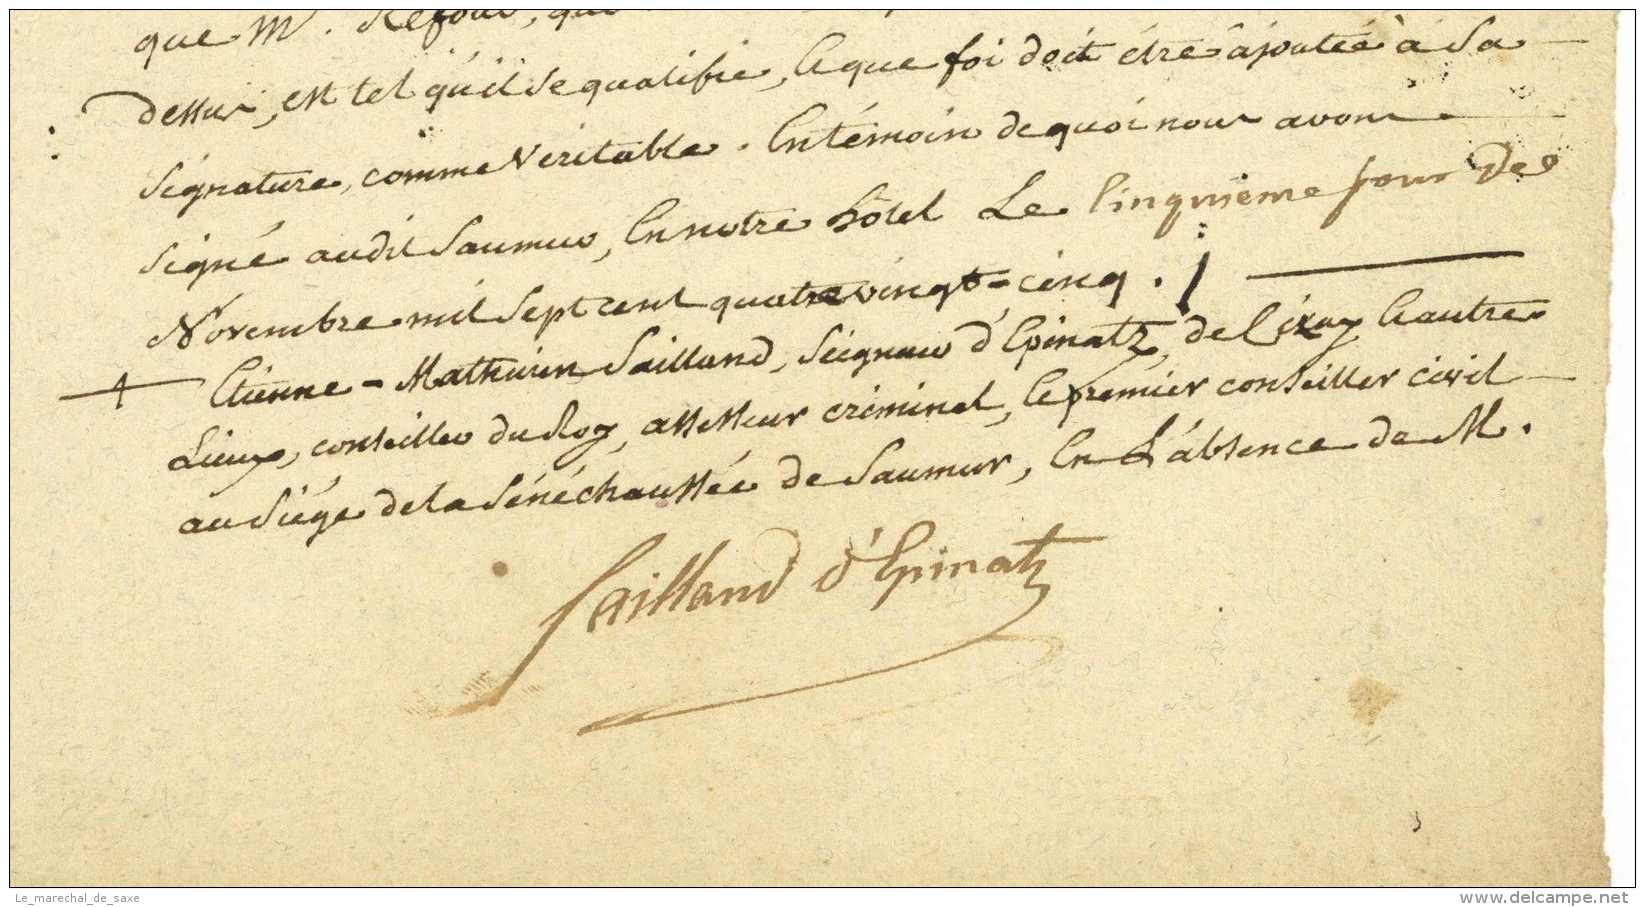 que Mr. Refour, qui
dessus, est tel qu'il se qualifie, Et que foi doit être âjoutée à Sa
signature, comme Veritable. En témoin de quoi nous avons
signé audit Saumur, En notre hôtel Le Cinquieme jour De
Novembre mil sept cent quatre vingt-cinq.
Etienne-Mathurin Sailland, Seigneur d'Epinatz, de Lizay Et autres
Lieux, conseiller du Roy, assesseur criminel, Et premier conseiller civil
au Siége de la Sénéchaussée de Saumur, En L'absence de M.
Sailland d'Epinatz
Le_marechal_de_saxe
delcampe.net